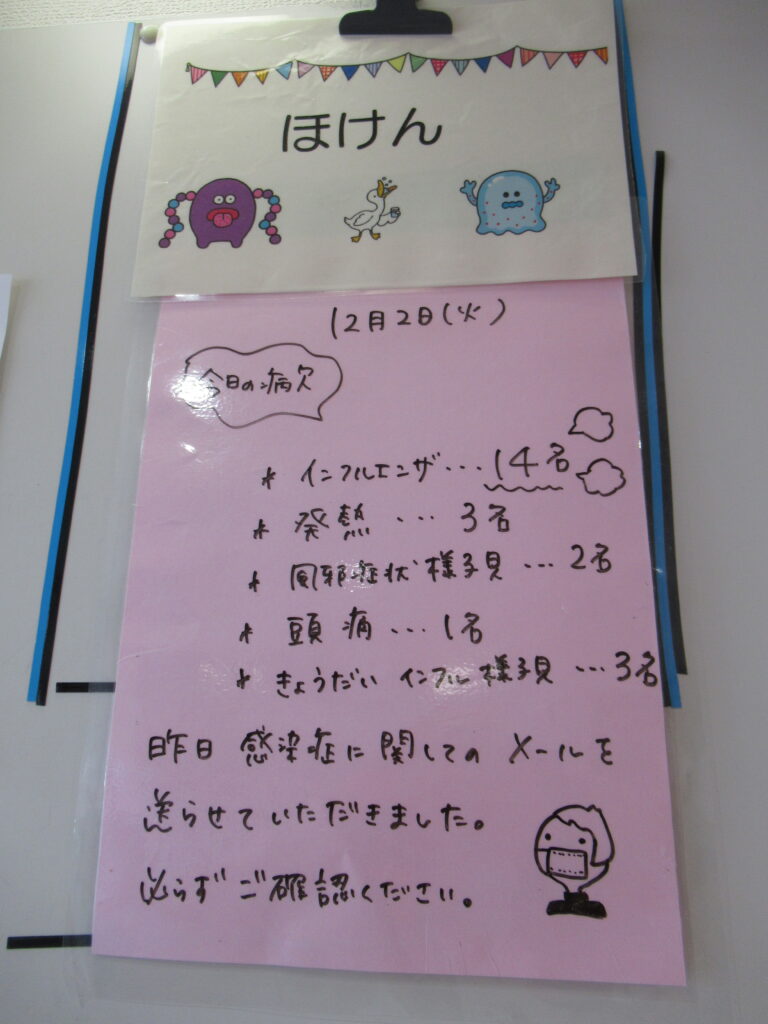 ほけん
12月2日(火)
今日の病欠
* インフルエンザ...14名
* 発熱...3名
* 風邪症状様子見...2名
* 頭痛...1名
* きょうだいインフル様子見...3名
昨日 感染症に関してのメールを
送らせていただきました。
必らずご確認ください。